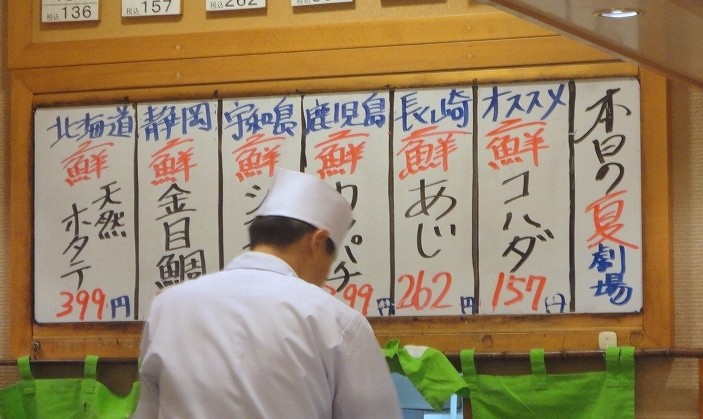 136
税込
157
税込
262
税込
本日の
夏
劇場
オススメ
鮮
コハダ
157円
長崎
鮮
あじ
262円
鹿児島
鮮
カンパチ
399円
宇和島
鮮
シ
静岡
鮮
金目鯛
北海道
鮮
天然
ホタテ
399円